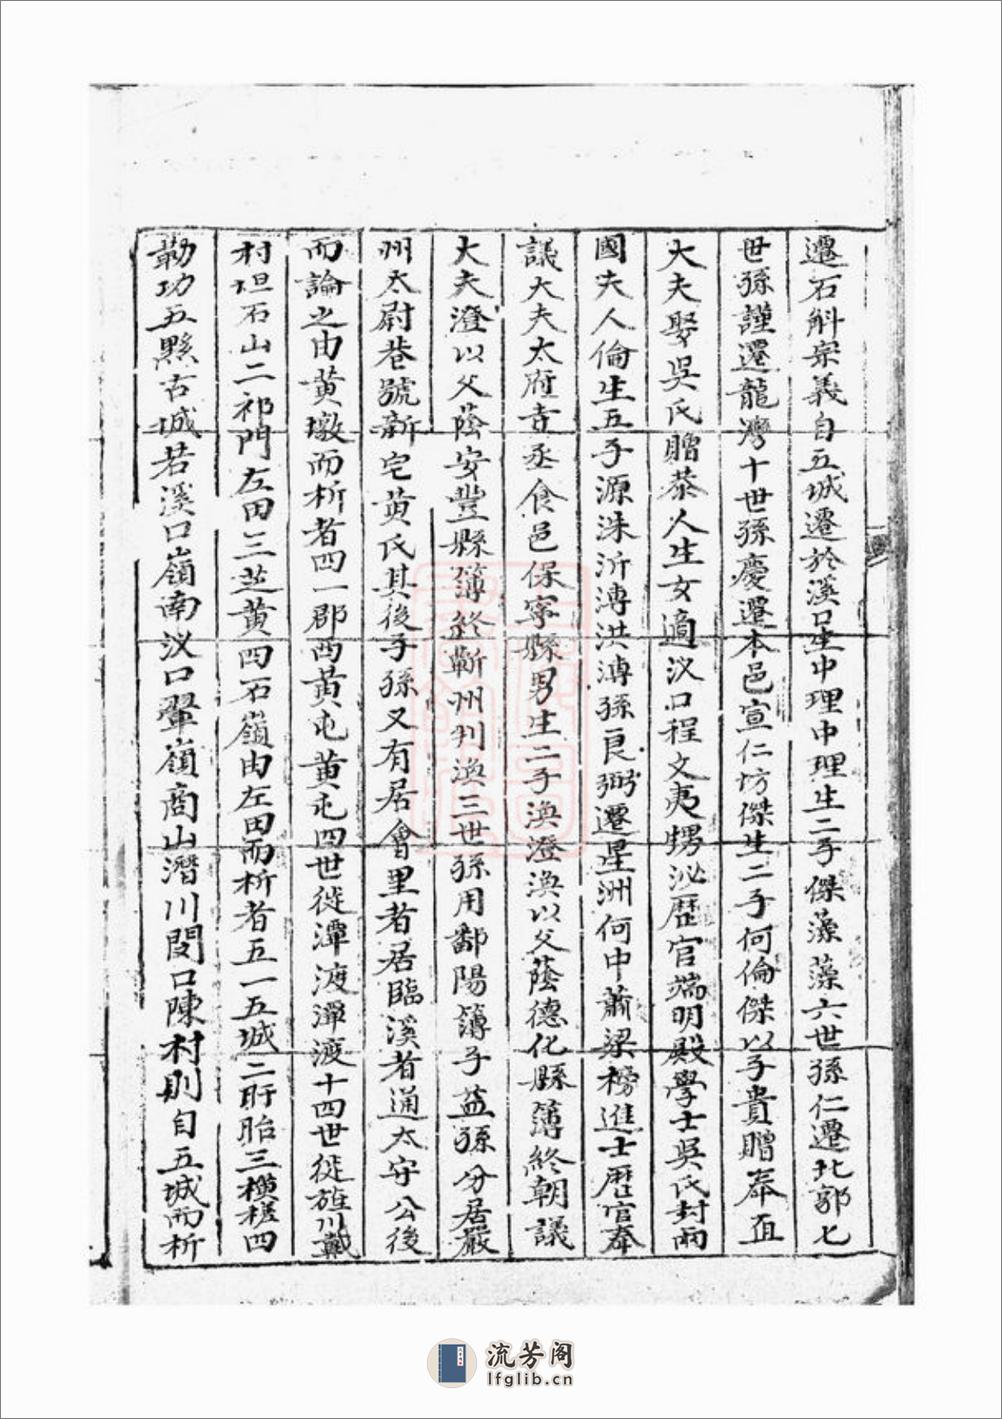 遷石斛宗義自五城遷於溪口生中理中理生二子傑藻藻六世孫仁遷北郭七
世孫謹遷龍灣十世孫慶遷本邑宣仁坊傑生二子何倫傑以子貴贈奉直
大夫娶吳氏贈恭人生女適汊口程文夷甥泌歷官端明殿學士吳氏封兩
國夫人倫生五子源洙沂溥洪溥孫良弼遷星洲何中蕭梁榜進士歷官奉
議大夫太府寺丞食邑保寧縣男生二子渙澄渙以父蔭德化縣簿終朝議
大夫澄以父蔭安豐縣簿終蘄州判渙三世孫用鄱陽簿子益孫分居嚴
州太尉巷號新宅黄氏其後子孫又有居會里者居臨溪者通太守公後
而論之由黄墩而析者四一郡西黄屯黄屯四世徙潭渡潭渡十四世徙旌川戴
村坦石山二祁門左田三芝黄四石嶺由左田而析者五一五城二盱眙三横槎四
勒功五黟古城若溪口嶺南汊口翚嶺商山潛川閔口陳村則自五城而析
流芳阁
lfglib.cn